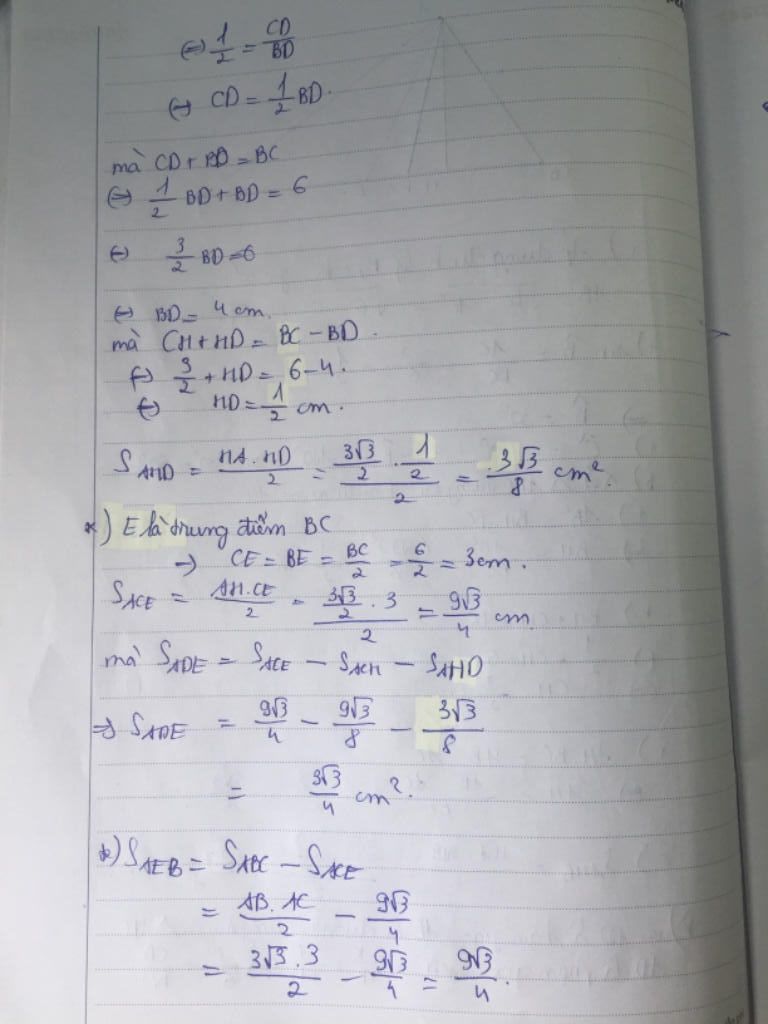 (=) 1/2 = CD/BD
(=) CD = 1/2 BD.
mà CD + BD = BC
(=) 1/2 BD + BD = 6
(=) 3/2 BD = 6
(=) BD = 4 cm.
mà CH + HD = BC - BD.
(=) 3/2 + HD = 6 - 4.
(=) HD = 1/2 cm.
S AHD = HA.HD/2 = (3√3/2 . 1/2)/2 = 3√3/8 cm².
*) E là trung điểm BC
→ CE = BE = BC/2 = 6/2 = 3cm.
S ACE = AH.CE/2 = (3√3/2 . 3)/2 = 9√3/4 cm.
mà S ADE = S ACE - S ACH - S AHD
=> S ADE = 9√3/4 - 9√3/8 - 3√3/8
= 3√3/4 cm².
*) S AEB = S ABC - S ACE
= AB.AC/2 - 9√3/4
= 3√3.3/2 - 9√3/4 = 9√3/4.